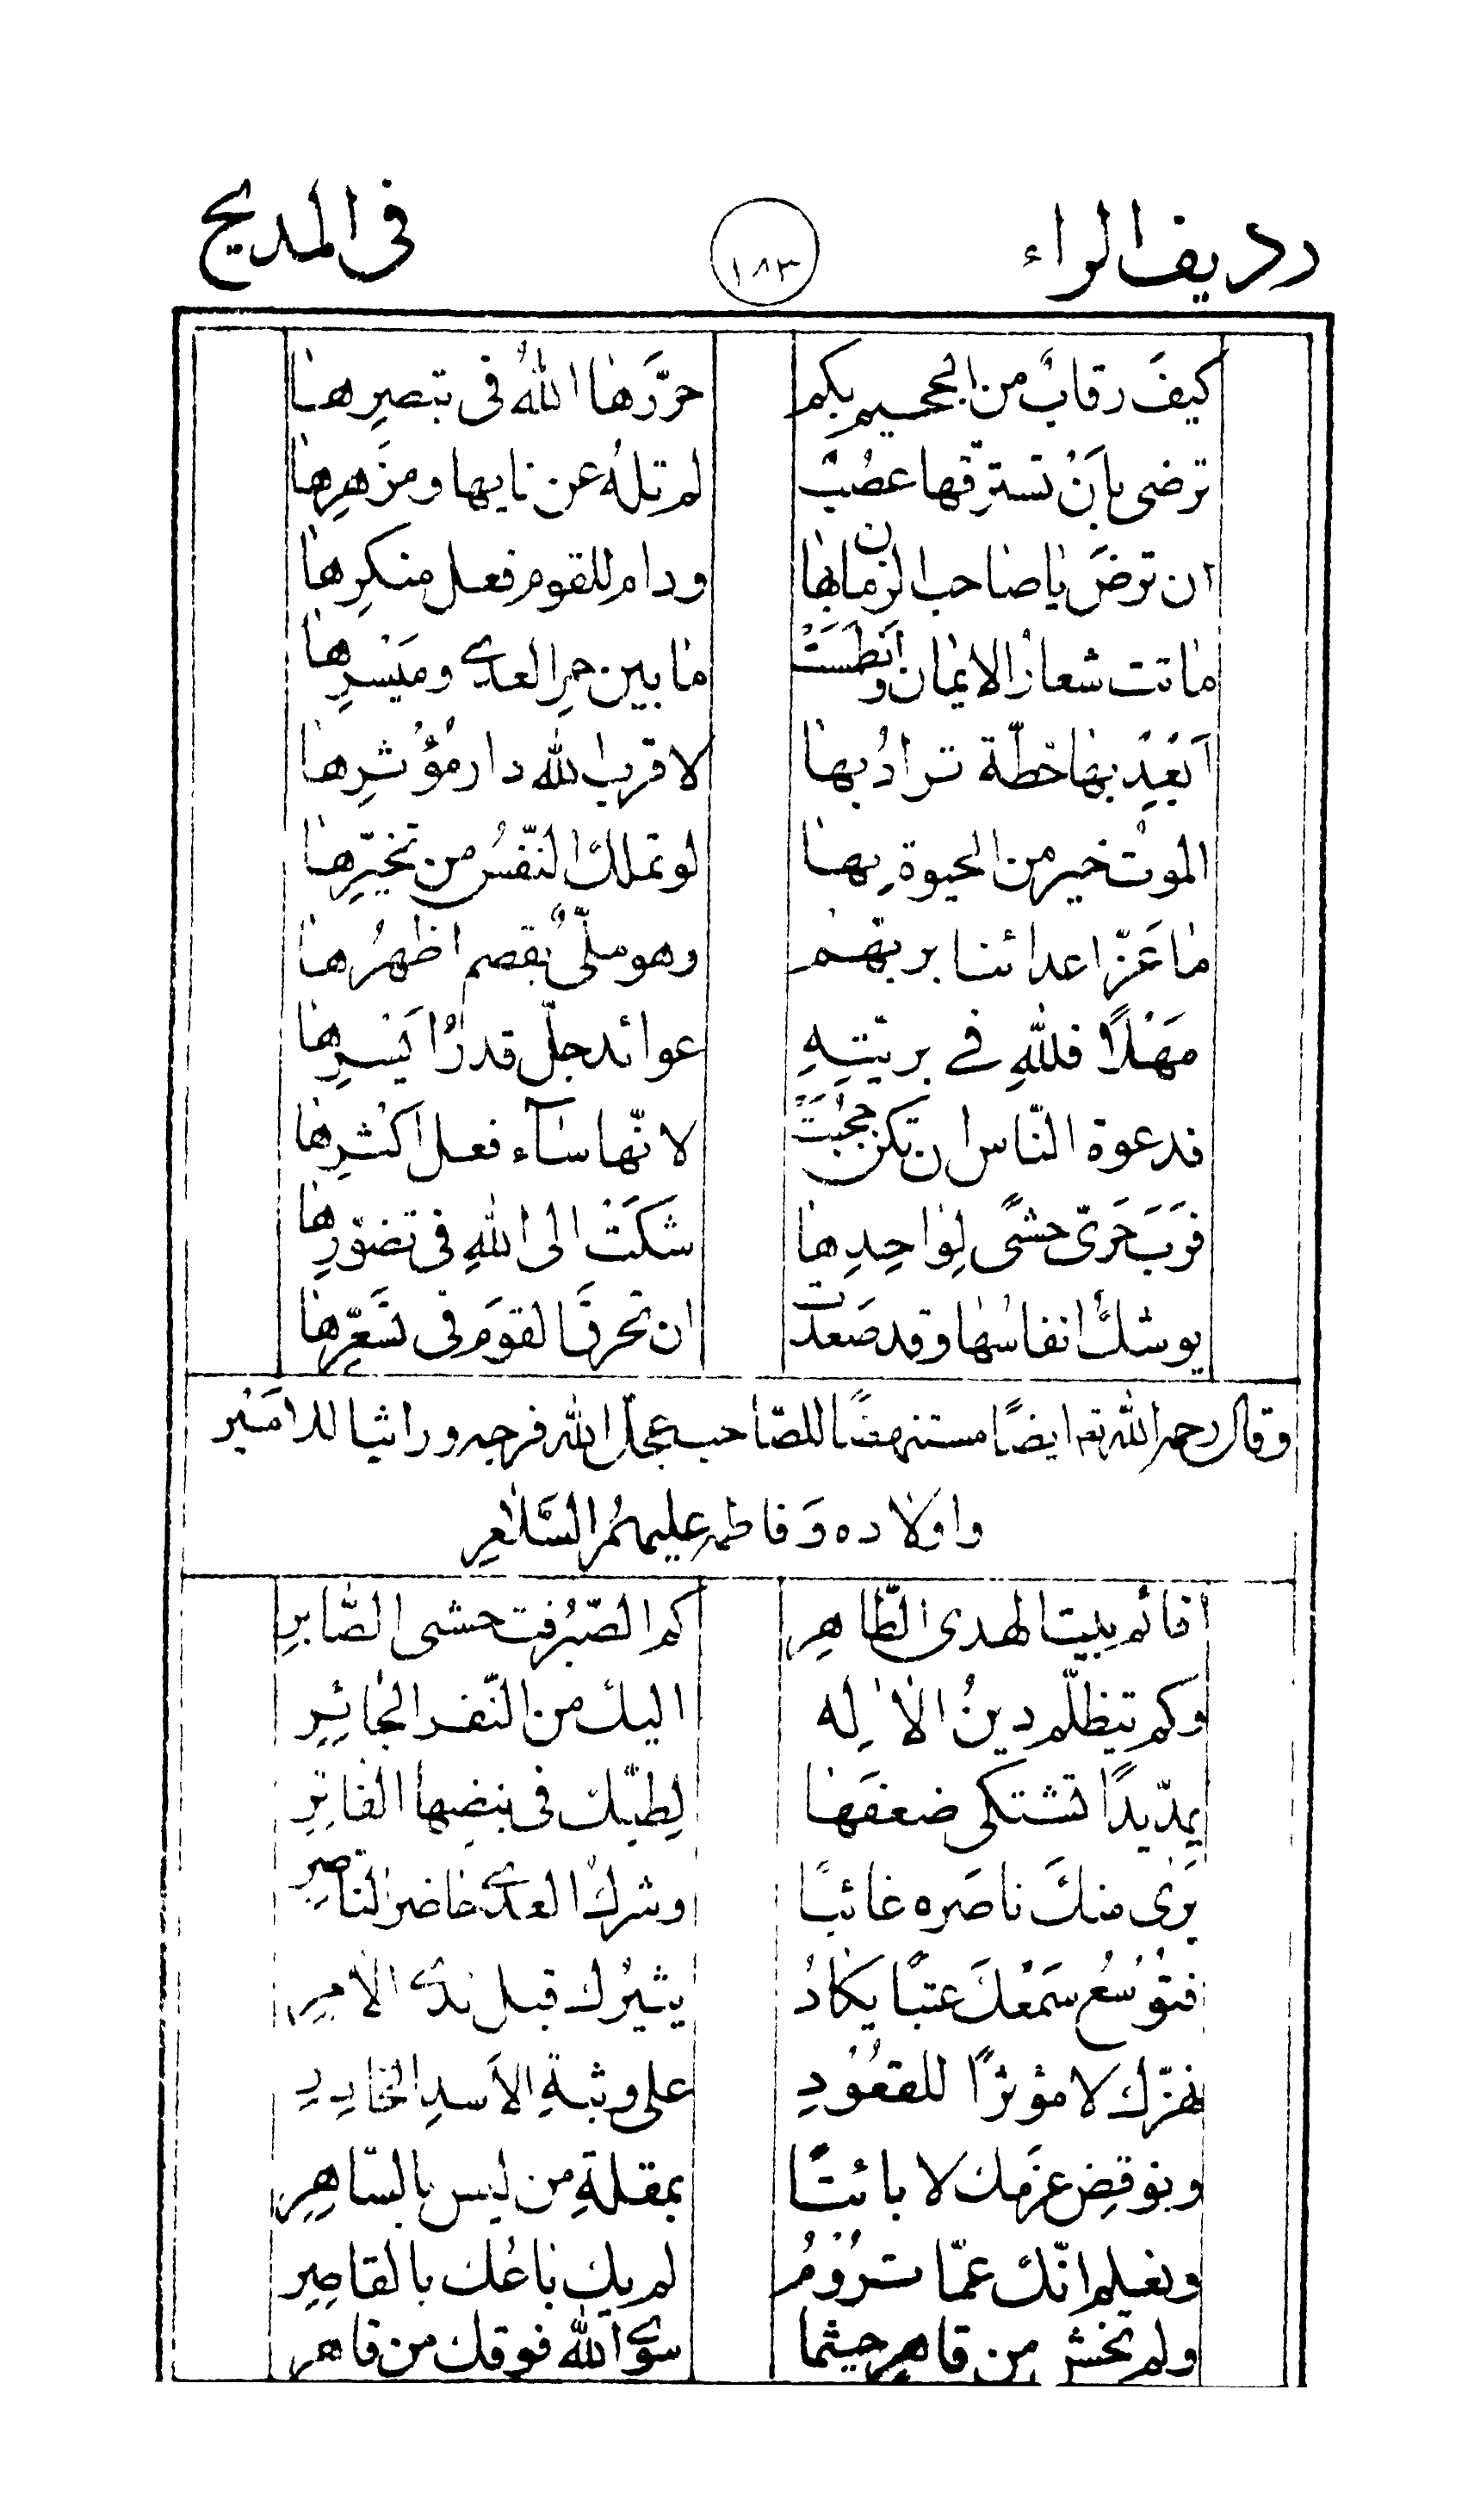 رديف الراء ١٨٣ فى المديح
كيفَ رقابٌ من الجحيم بكم حرَّرَها اللهُ فى تبصيرها
ترضى بأنْ تسترقّها عصُبٌ لم تلهُ عن نايها ومزهرِها
ان ترضَ يا صاحب الزمان بها ودام للقوم فعل منكرِها
ماتت شعار الايمان وانطمسَتْ ما بين خمر العدى وميْسرِها
اَبْعِدْ بها خطّة تُرادُ بها لا قرب الله دار مُؤْثرِها
الموتُ خير من الحيوةِ بها لو تملك النّفسُ من تخيّرِها
ما عَزّ اعدائنا بربّهم وهو ملىٌّ بقصم اظهُرها
مَهْلاً فللّهِ في بريّتِهِ عوائد جلّ قدرُ اَيسرِها
فدعوة النّاس ان تكن حُجبَتْ لانّها ساۤء فعل اكثرِها
فربَ حَرىّ حشىً لِواحِدِها شكَتْ الى اللهِ فى تضوّرِها
يوشك انفاسُها وقد صَعدت ان تحرقَ القومَ فى تسَعّرِها
وقال رحمه الله تعه ايضًا مستنهضًا للصّاحب عجل الله فرجه وراثيا للامير
واولاده وَفاطمه عليهمُ السَّلامِ
اقائم بيت الهدى الطّاهرِ كم الصّبرُ فت حشى الصّابرِ
وكم يتظلّم دينُ الاله اليك من النّفر الجائِرِ
يمدّ يدًا تشتكى ضعفَها لِطبّك فى نبضِها الفاترِ
يَرى منكَ ناصَره غائبًا وشرك العدى حاضر الناصِرِ
فتُوْسُع سَمْعكَ عتبًا يكادُ يثيرُك قبل ندى الامِرِ
نهزّك لا مؤثرًا للقعُوْدِ على وثبةِ الاَسدِ الخادِرِ
ونوقِض عزمك لا بائتًا بمقلةِ من ليس بالسّاهِرِ
ونعلم انّك عمّا ترُوْمُ لم يك باعُك بالقاصِرِ
ولم تخش من قاهر حيثما سوى الله فوقك من قاهر